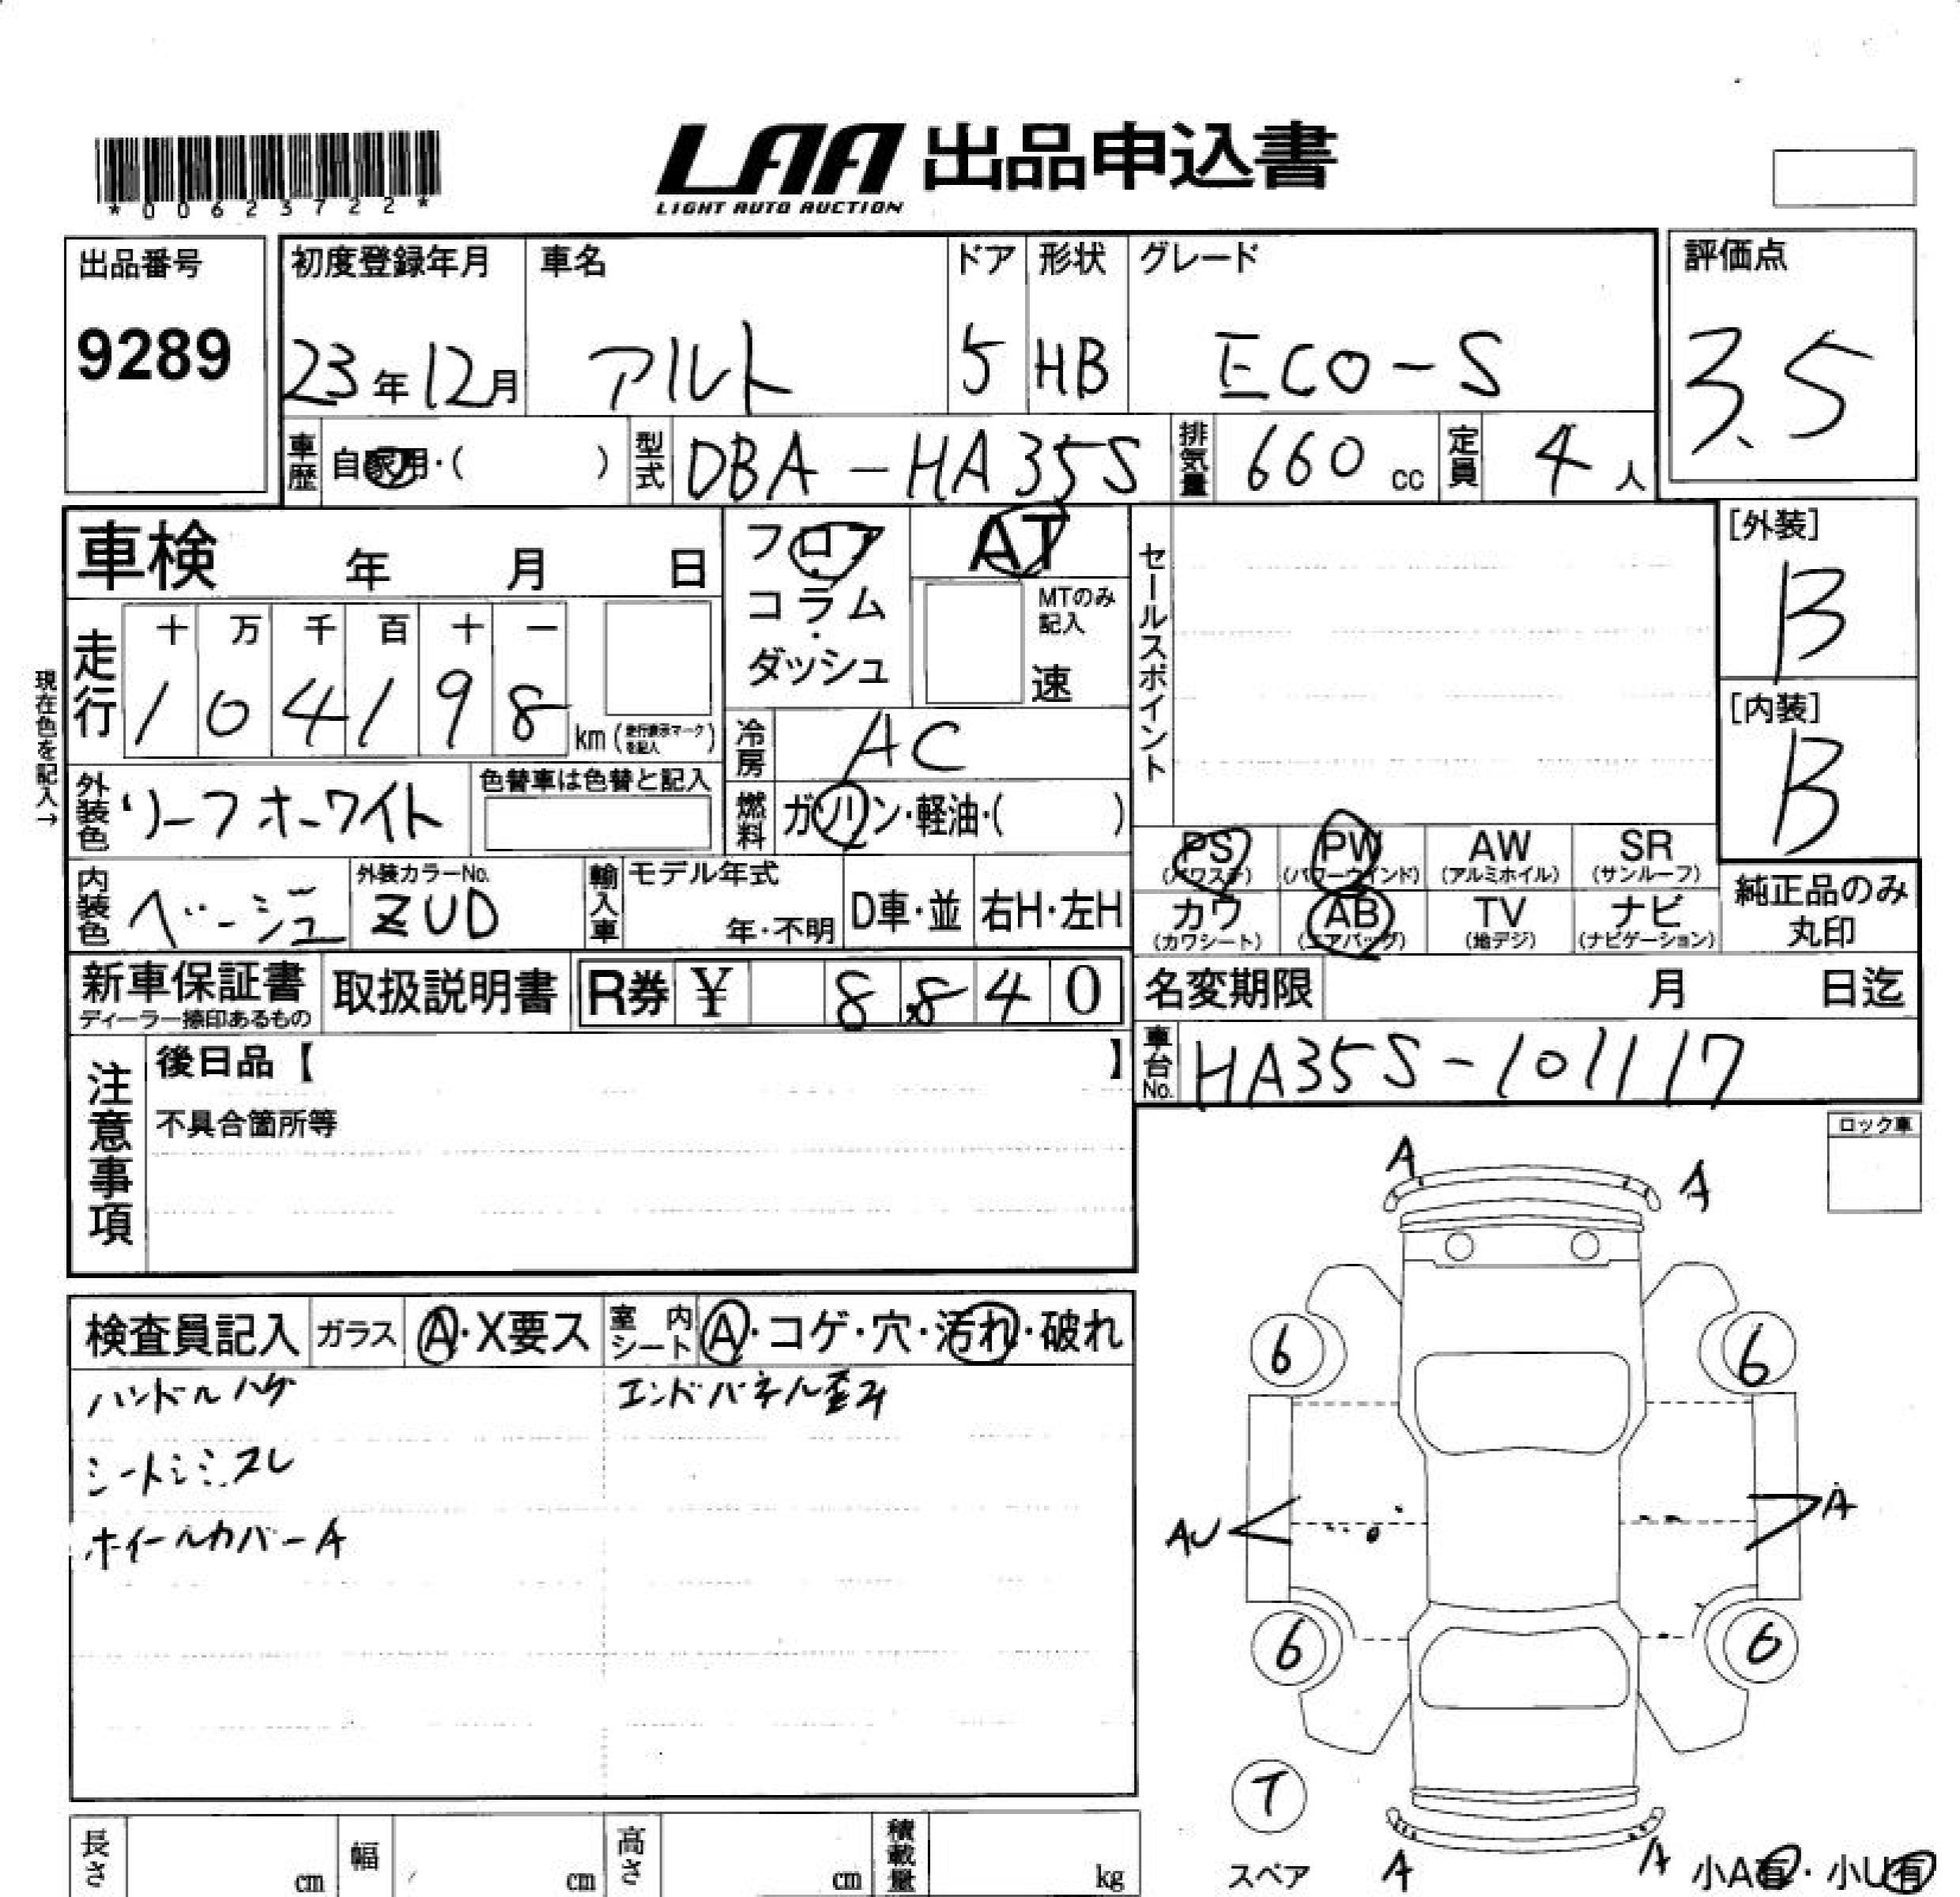 LAA 出品申込書
LIGHT AUTO AUCTION
*00623722*
出品番号
9289
初度登録年月
23年12月
車名
アルト
ドア
5
形状
HB
グレード
ECO-S
評価点
3.5
車歴 自家用・( )
型式 DBA-HA35S
排気量 660 cc
定員 4 人
車検 年 月 日
フロア
・
コラム
・
ダッシュ
AT
MTのみ
記入
速
セールスポイント
[外装]
B
[内装]
B
現在色を記入→
走行
十 万 千 百 十 一
1 0 4 1 9 8 km (走行表示マークを記入)
冷房 AC
外装色 リーフホワイト
色替車は色替と記入
燃料 ガソリン・軽油・( )
内装色 ベージュ
外装カラーNo.
ZUD
輸入車
モデル年式
年・不明
D車・並
右H・左H
PS
(パワステ)
PW
(パワーウインド)
AW
(アルミホイル)
SR
(サンルーフ)
カワ
(カワシート)
AB
(エアバッグ)
TV
(地デジ)
ナビ
(ナビゲーション)
純正品のみ
丸印
新車保証書
ディーラー捺印あるもの
取扱説明書
R券 ¥ 8,840
名変期限 月 日迄
車台No. HA35S-101117
注意事項
後日品【 】
不具合箇所等
ロック車
検査員記入
ガラス A・X要ス
室内シート A・コゲ・穴・汚れ・破れ
ハンドルハゲ
エンドパネル歪み
シートシミスレ
ホイールカバーA
A
A
6
6
AU
A
6
6
T
スペア
A
A
小A有・小U有
長さ cm
幅 cm
高さ cm
積載量 kg